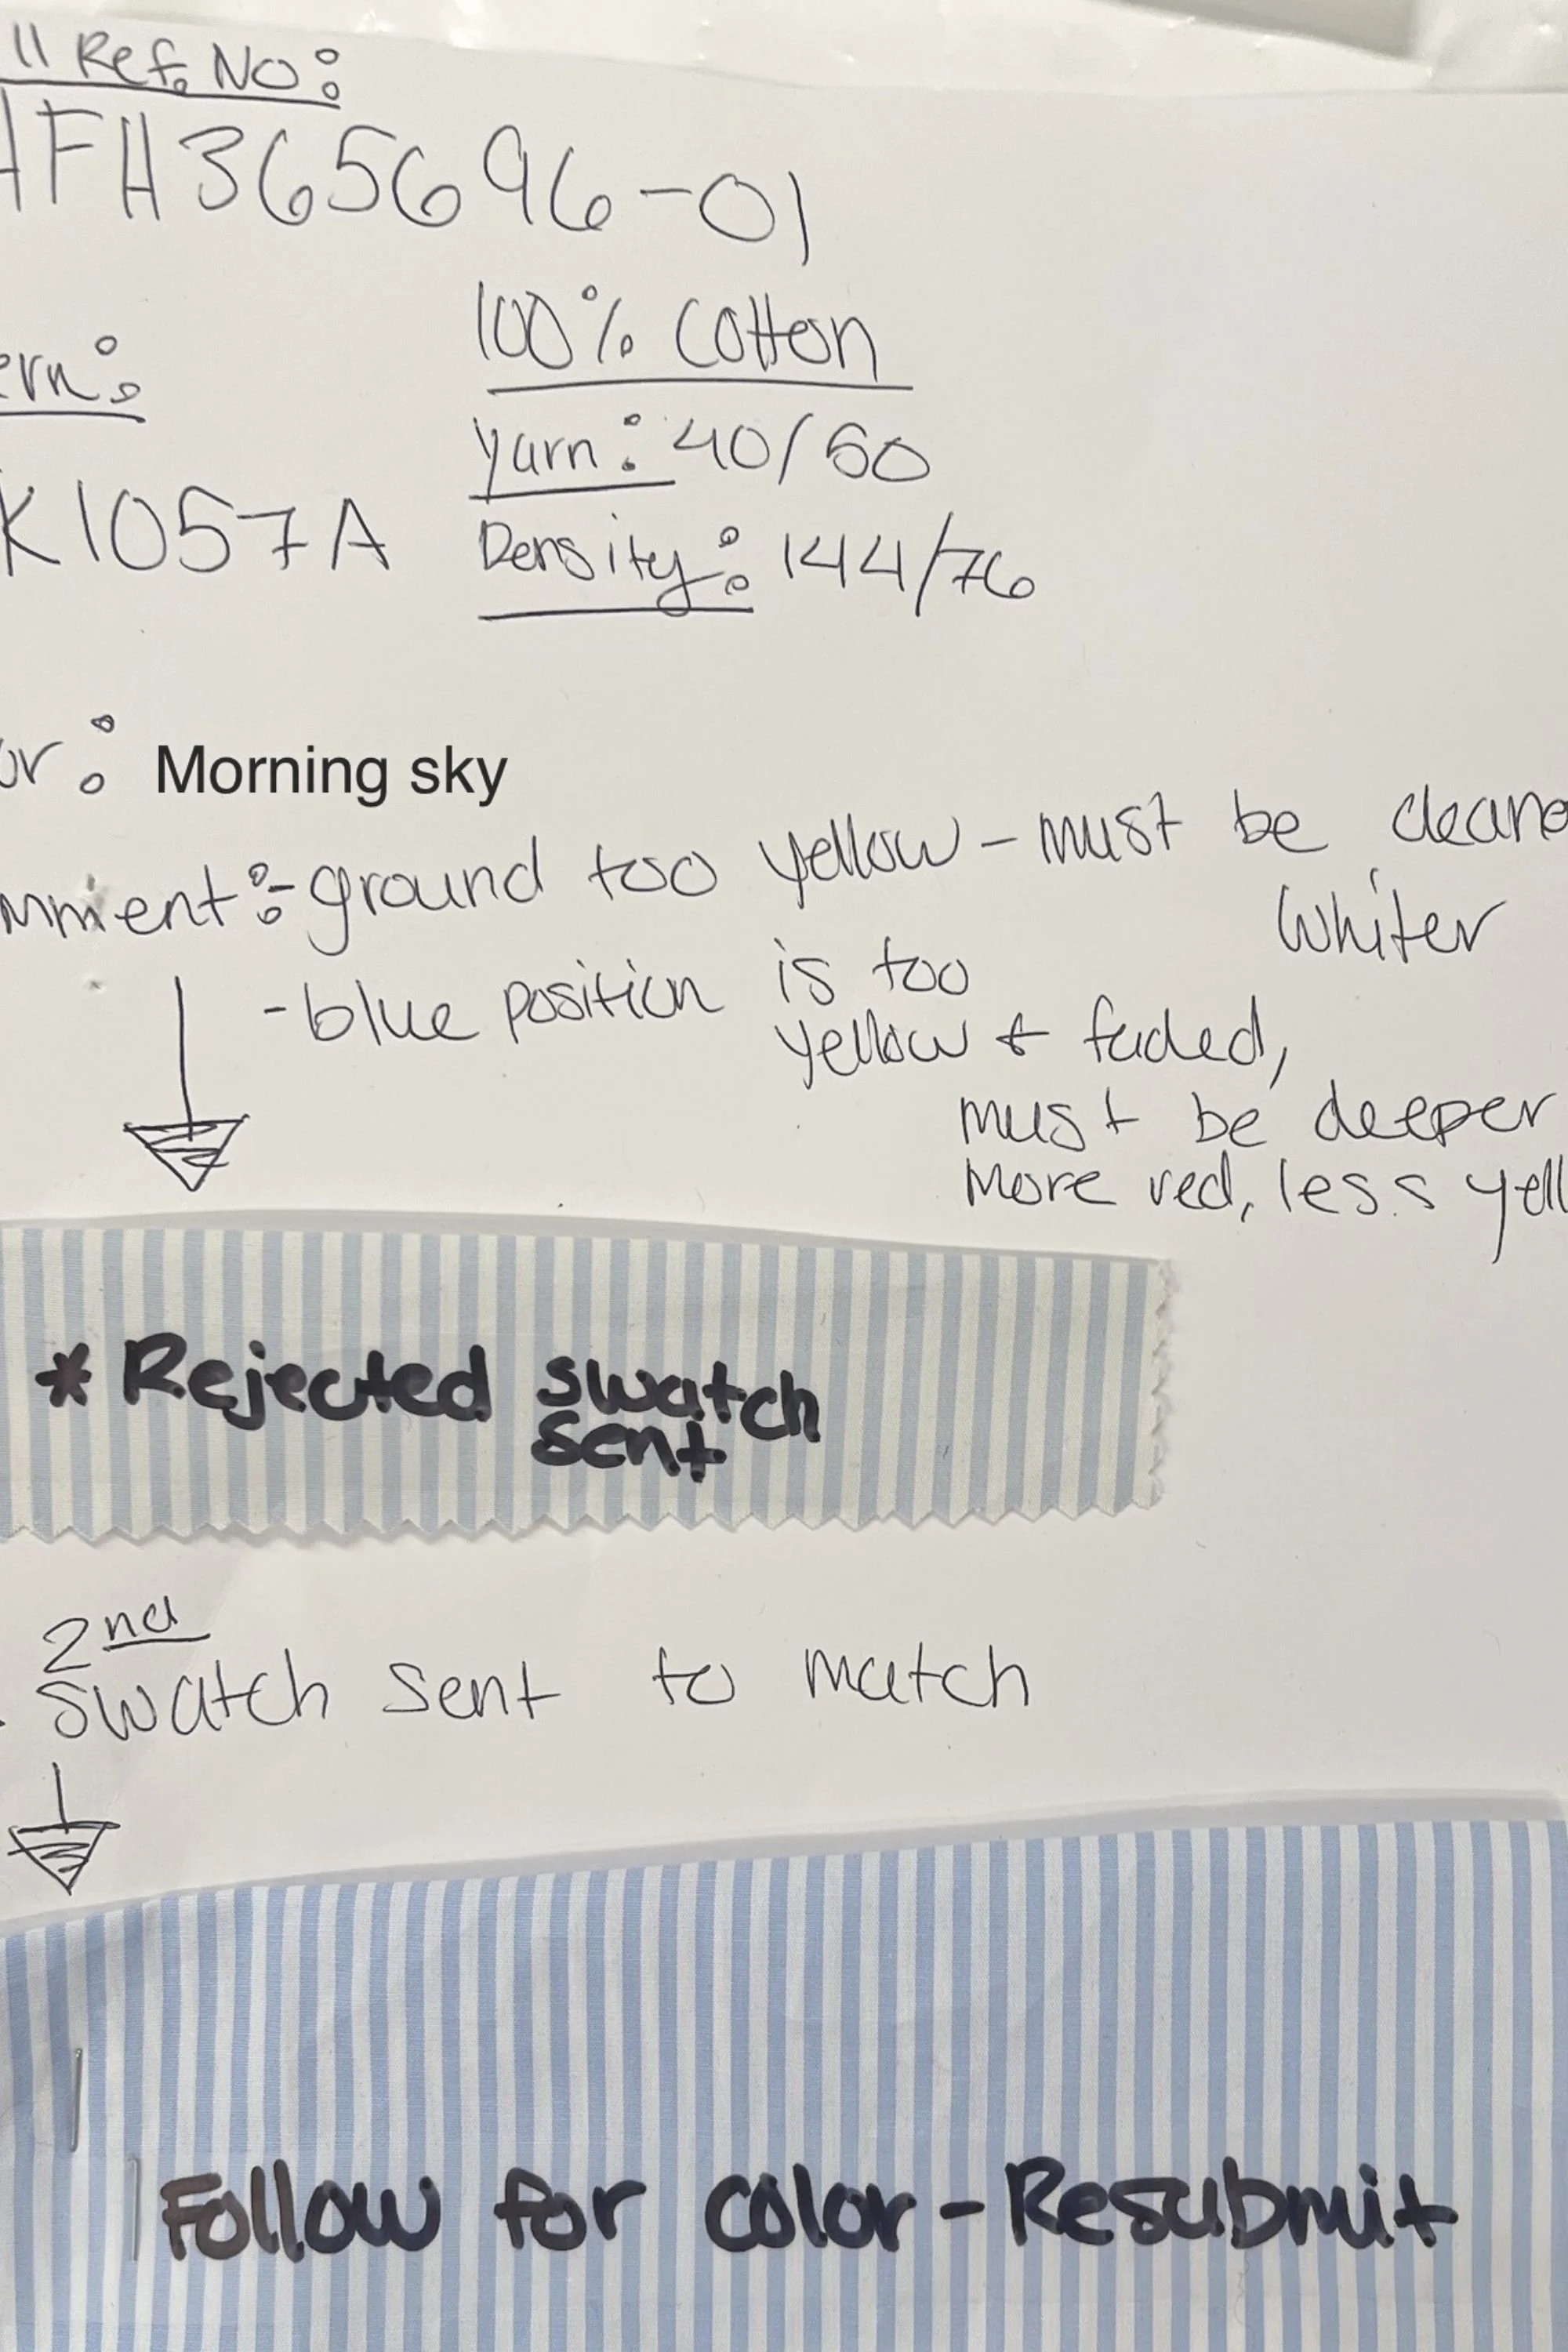 ll Ref. No:
HFH365696-01
100% Cotton
ern:
Yarn: 40/50
K1057A
Density: 144/76
or: Morning sky
mment:- ground too yellow - must be cleane
whiter
- blue position is too
yellow + faded,
must be deeper
more red, less yell
* Rejected swatch
sent
2nd
swatch sent to match
Follow for color - Resubmit